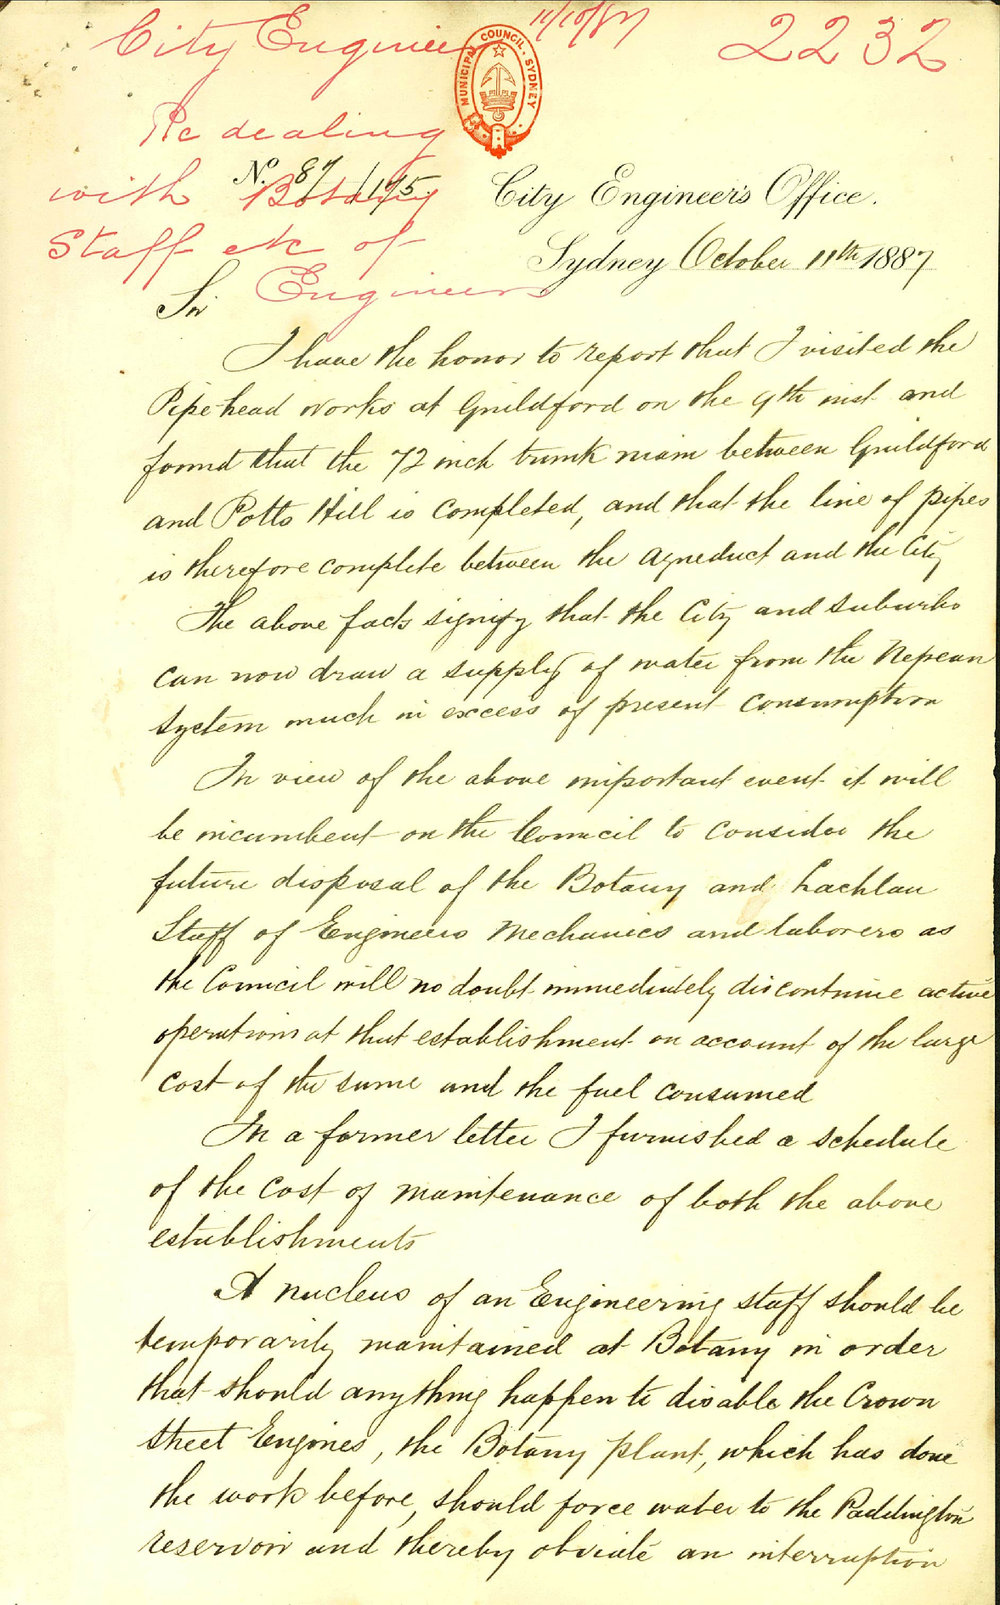 City Engineer 11/10/87 2232
MUNICIPAL COUNCIL SYDNEY
Re dealing
with Botany
Staff etc of
Engineers
No. 87/1175. City Engineer's Office.
Sydney October 11th 1887
Sir
I have the honor to report that I visited the
Pipe head works at Guildford on the 9th inst and
found that the 72 inch trunk main between Guildford
and Potts Hill is completed, and that the line of pipes
is therefore complete between the aqueduct and the City
The above facts signify that the City and suburbs
can now draw a supply of water from the Nepean
system much in excess of present consumption
In view of the above important event it will
be incumbent on the Council to consider the
future disposal of the Botany and Lachlan
Staff of Engineers Mechanics and laborers as
the Council will no doubt immediately discontinue active
operations at that establishment on account of the large
cost of the same and the fuel consumed
In a former letter I furnished a schedule
of the cost of maintenance of both the above
establishments
A nucleus of an Engineering staff should be
temporarily maintained at Botany in order
that should anything happen to disable the Crown
Street Engines, the Botany plant, which has done
the work before, should force water to the Paddington
reservoir and thereby obviate an interruption